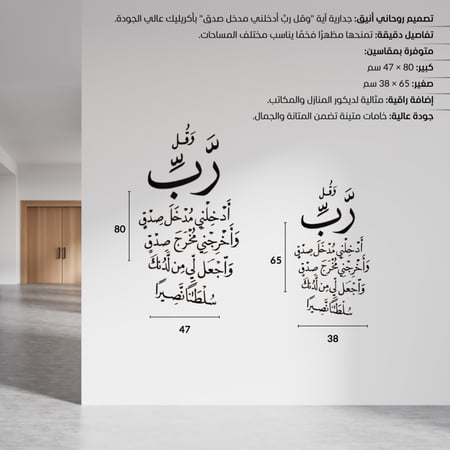 تصميم روحاني أنيق: جدارية آية "وقل ربّ أدخلني مدخل صدق" بأكريليك عالي الجودة.
تفاصيل دقيقة: تمنحها مظهرًا فخمًا يناسب مختلف المساحات.
متوفرة بمقاسين:
كبير: 80 × 47 سم
صغير: 65 × 38 سم
إضافة راقية: مثالية لديكور المنازل والمكاتب.
جودة عالية: خامات متينة تضمن المتانة والجمال.
وَقُل
رَّبِّ
أَدْخِلْنِي مُدْخَلَ صِدْقٍ
وَأَخْرِجْنِي مُخْرَجَ صِدْقٍ
وَاجْعَل لِّي مِن لَّدُنكَ
سُلْطَانًا نَّصِيرًا
80
47
وَقُل
رَّبِّ
أَدْخِلْنِي مُدْخَلَ صِدْقٍ
وَأَخْرِجْنِي مُخْرَجَ صِدْقٍ
وَاجْعَل لِّي مِن لَّدُنكَ
سُلْطَانًا نَّصِيرًا
65
38